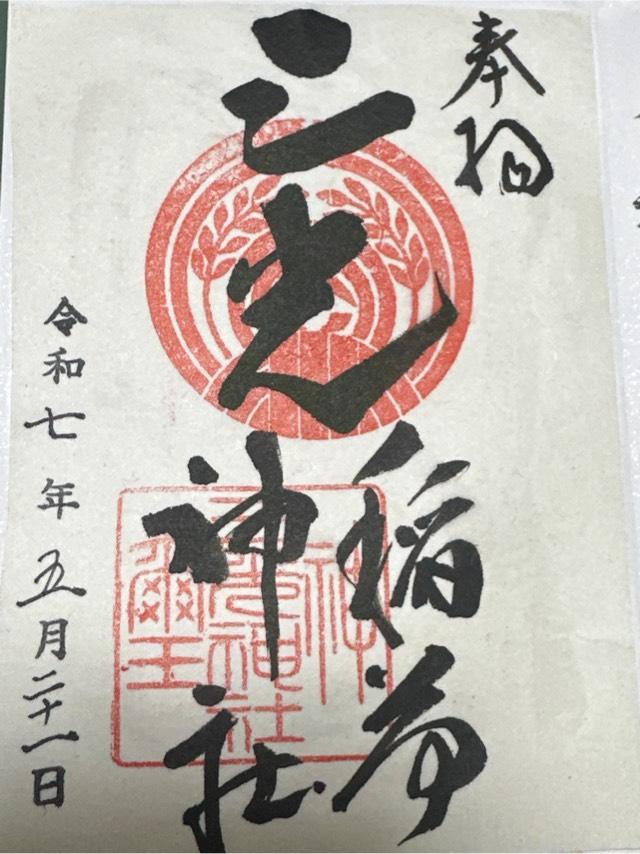 奉拝
三光
稲荷
神社
令和七年五月二十一日